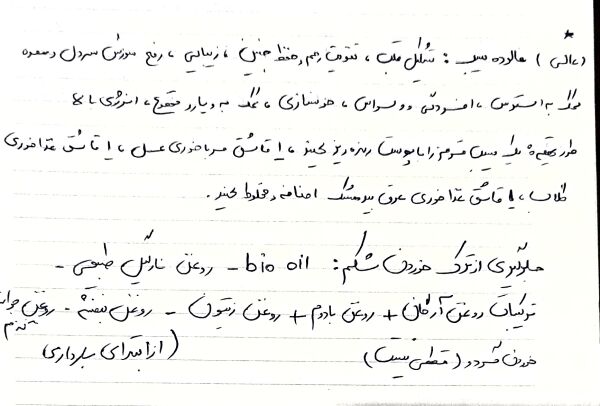 *
(عالی) فالوده سیب : تشکیل قلب ، تقویت رحم و حفظ جنین ، زیبایی ، رفع سوزش سردل و معده
کمک به استرس ، افسردگی و وسواس ، خونسازی ، کمک به ویار و تهوع ، انرژی بالا
طرز تهیه : یک سیب قرمز را با پوست رنده ریز کنید ، ۱ قاشق مرباخوری عسل ، ۱ قاشق غذاخوری
گلاب ، ۱ قاشق غذاخوری عرق بیدمشک اضافه و مخلوط کنید .
جلوگیری از ترک خوردن شکم : bio oil - روغن نارگیل طبیعی -
ترکیبات روغن آرگان + روغن بادوم + روغن زیتون - روغن بنفشه - روغن جوانه گندم
خوردن گردو (قطعی نیست) (از ابتدای بارداری)